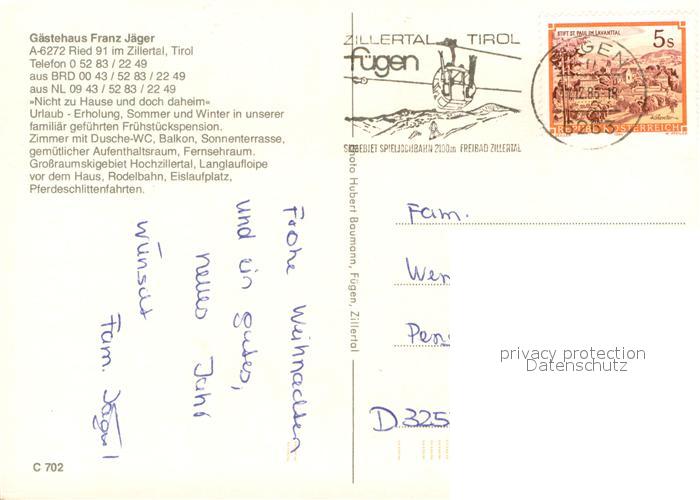 Gästehaus Franz Jäger
A-6272 Ried 91 im Zillertal, Tirol
Telefon 0 52 83 / 22 49
aus BRD 00 43 / 52 83 / 22 49
aus NL 09 43 / 52 83 / 22 49
»Nicht zu Hause und doch daheim«
Urlaub - Erholung, Sommer und Winter in unserer
familiär geführten Frühstückspension.
Zimmer mit Dusche-WC, Balkon, Sonnenterrasse,
gemütlicher Aufenthaltsraum, Fernsehraum.
Großraumskigebiet Hochzillertal, Langlaufloipe
vor dem Haus, Rodelbahn, Eislaufplatz,
Pferdeschlittenfahrten.
ZILLERTAL TIROL
fügen
SKIGEBIET SPIELJOCHBAHN 2100m FREIBAD ZILLERTAL
STIFT ST. PAUL IM LAVANTTAL
5 s
REPUBLIK ÖSTERREICH
FÜGEN
12.85-18
6263
Photo Hubert Baumann, Fügen, Zillertal
Frohe Weihnachten
und ein gutes,
neues Jahr
wünscht
Fam. Jäger
Fam.
Wer
Pen
D 325
privacy protection
Datenschutz
C 702